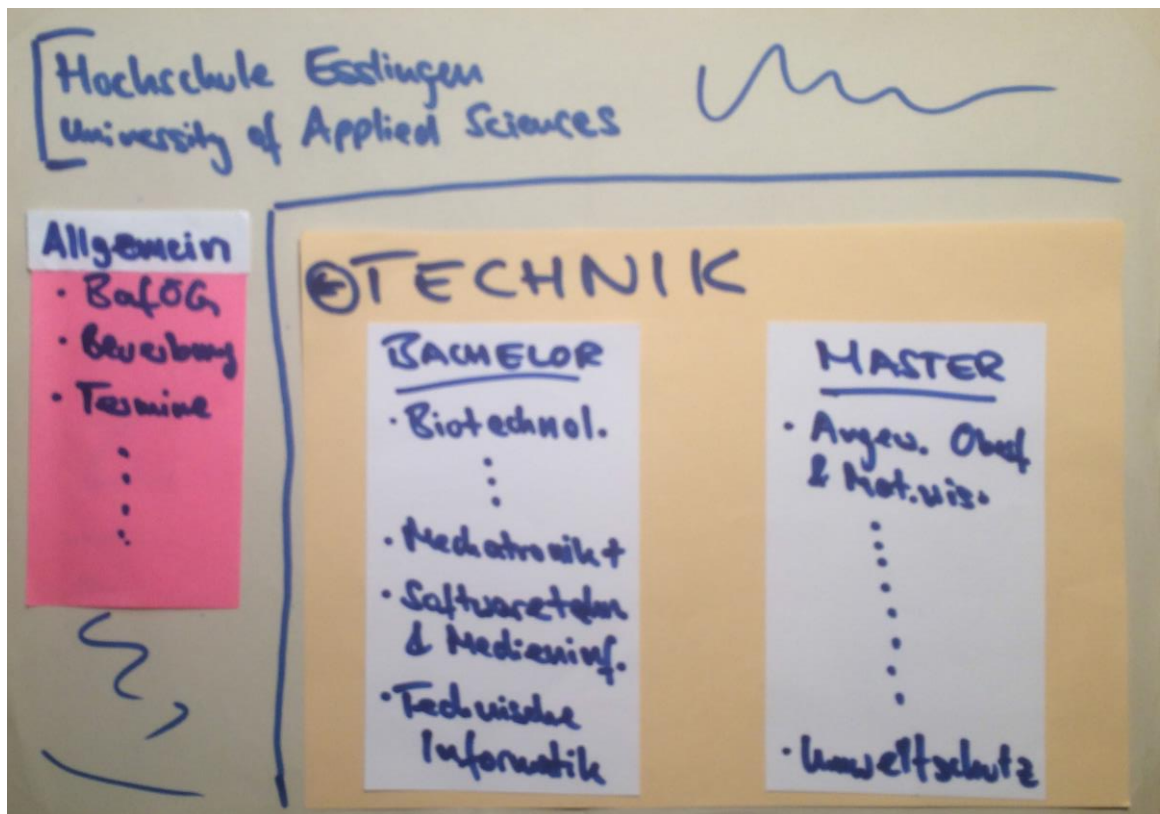 Hochschule Esslingen
University of Applied Sciences
Allgemein
· BafÖG
· Bewerbung
· Termine
TECHNIK
BACHELOR
· Biotechnol.
· Mechatronik +
· Softwaretechn
& Medieninf.
· Technische
Informatik
MASTER
· Angew. Oberf
& Mat.wis.
· Umweltschutz